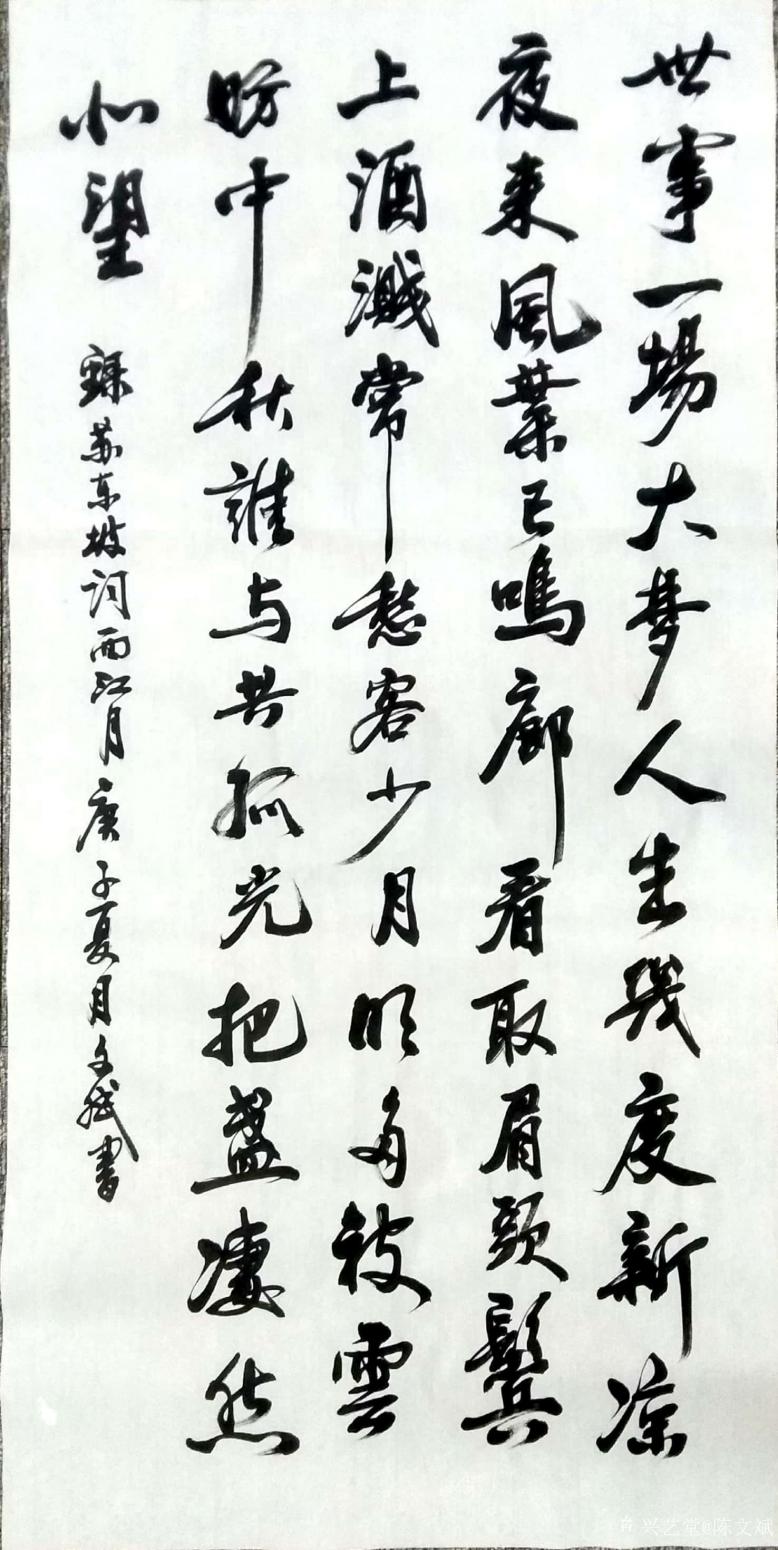 世事一場大梦人生幾度新涼
夜来風葉已鳴廊看取眉頭鬓
上酒溅常愁客少月明多被雲
妨中秋誰与共孤光把盏凄然
北望
録苏东坡词西江月庚子夏月文斌书
兴艺堂@陈文斌